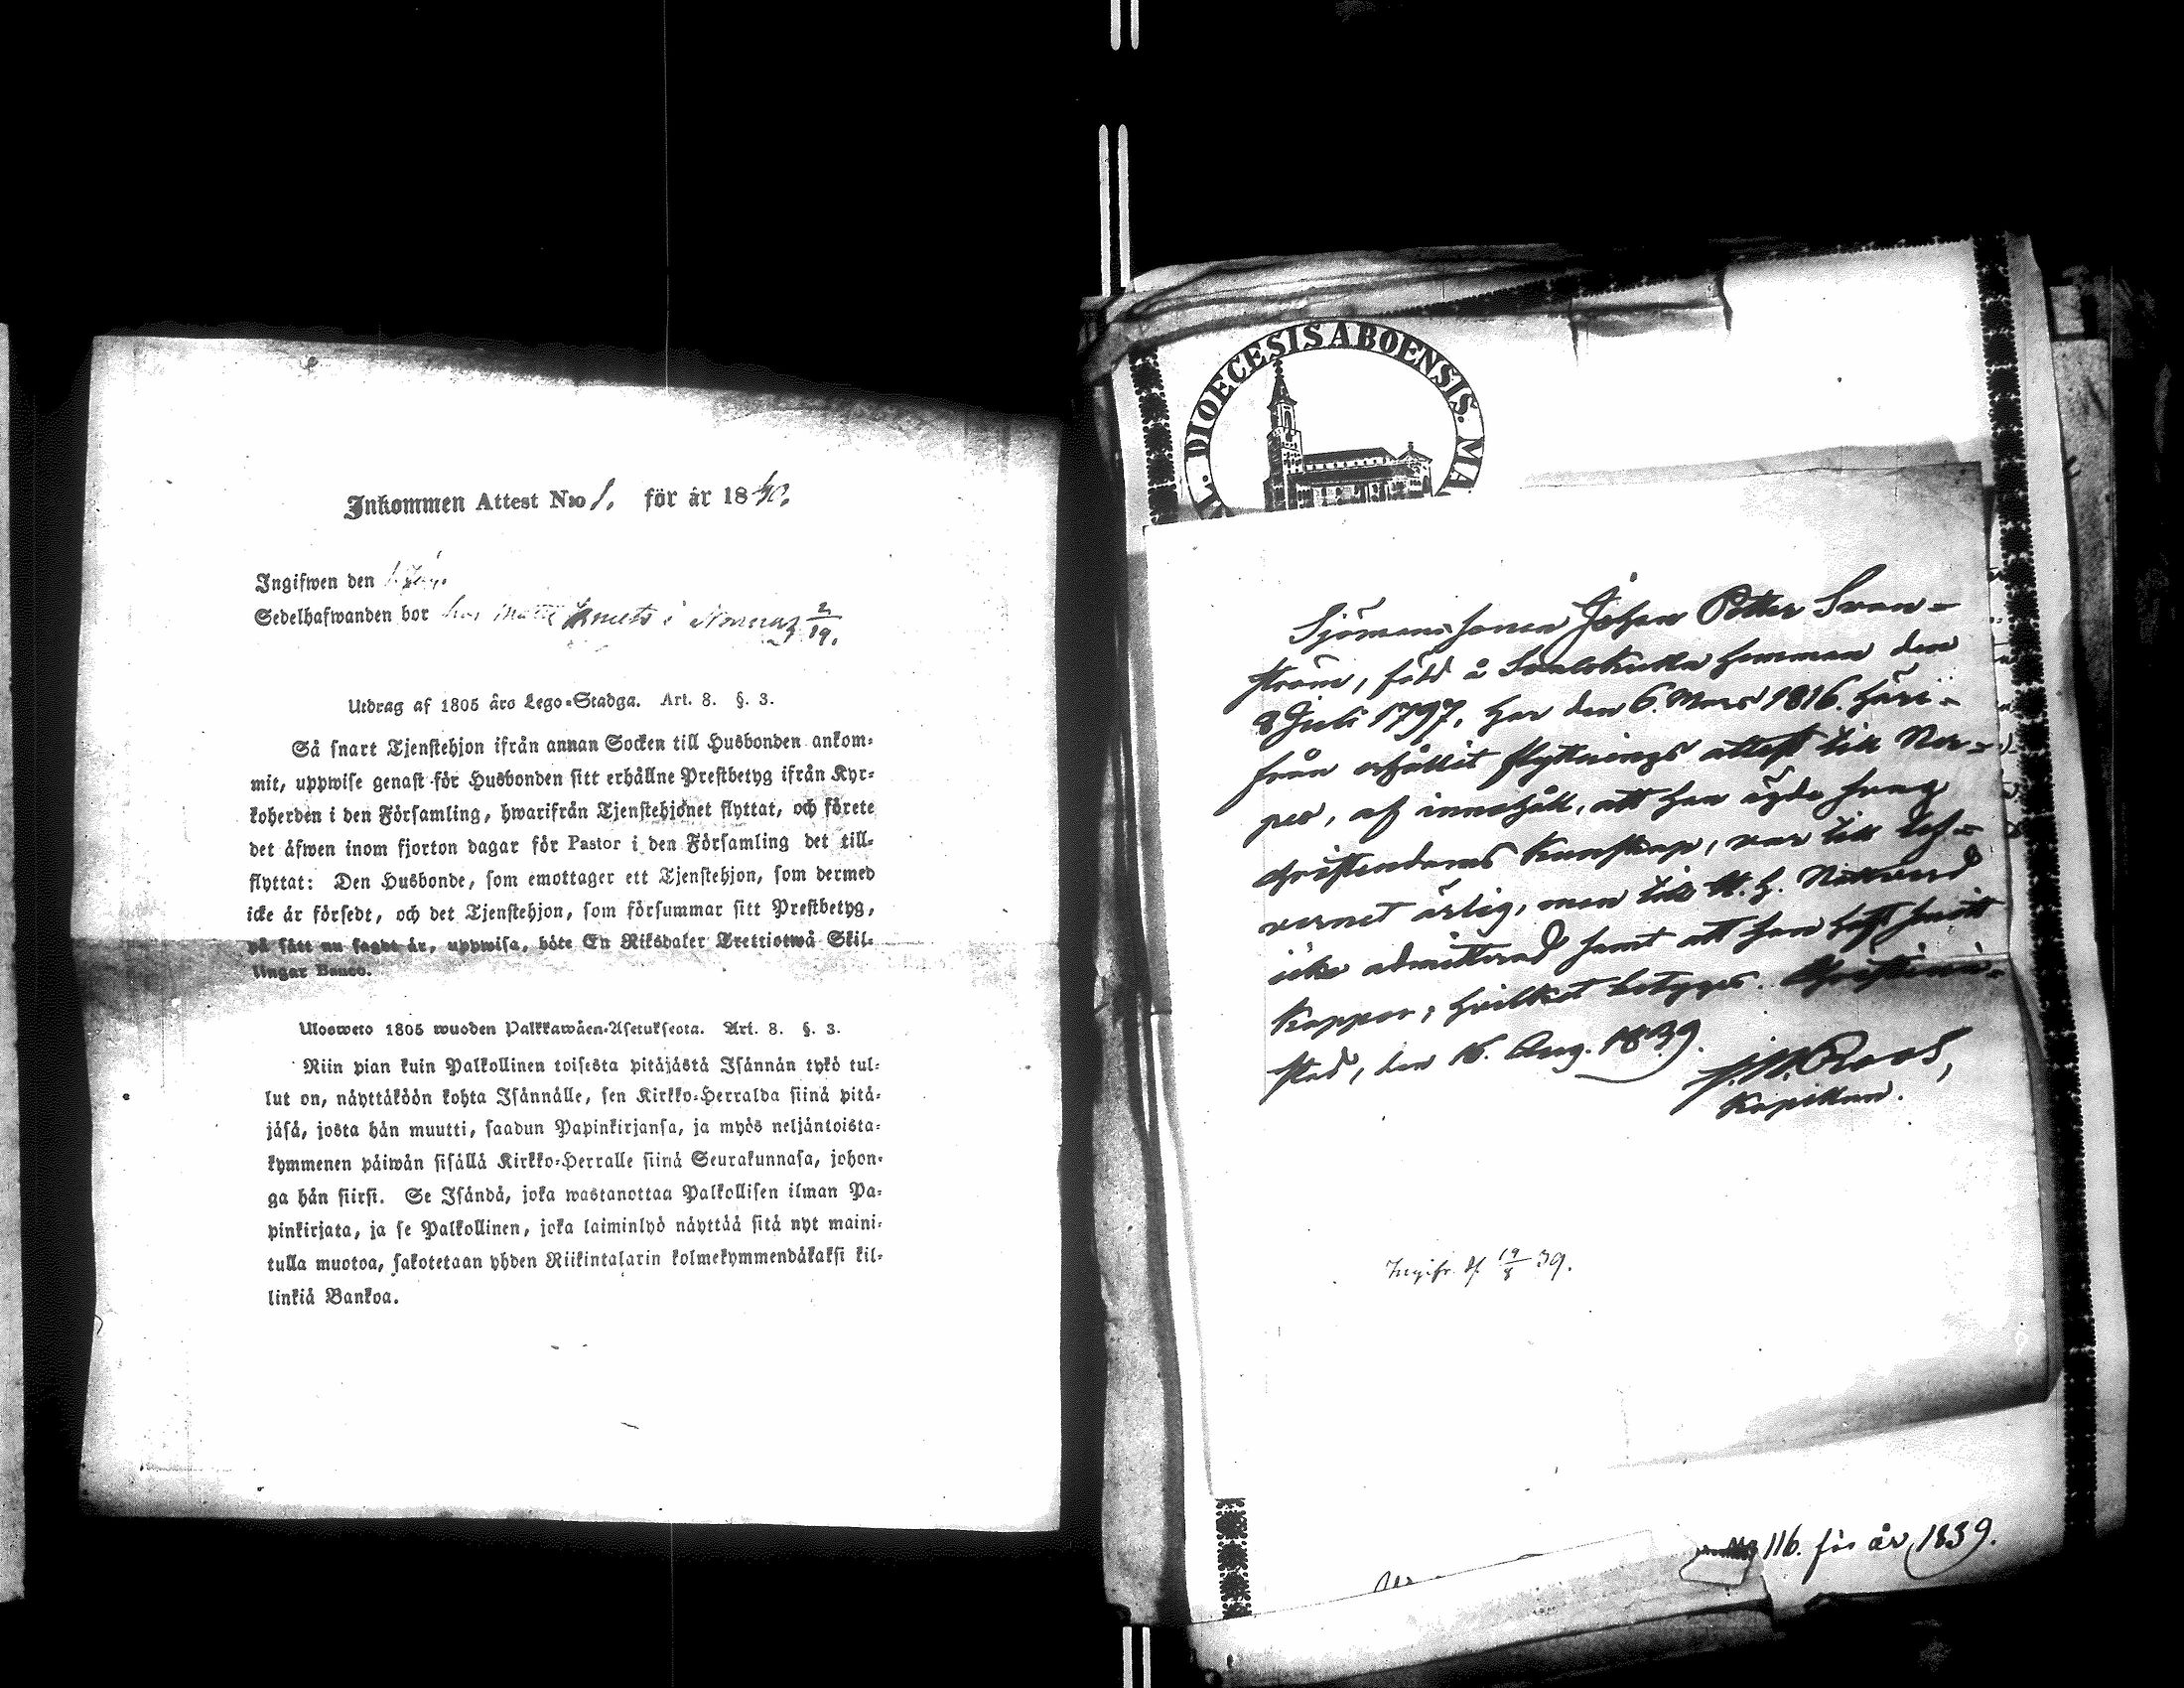 Inkommen Attest N:o 1. för år 1840.
Ingifwen den
Sedelhafwanden bor hos Matts i 2/19.
Utdrag af 1805 års Lego-Stadga. Art. 8. §. 3.
Så snart Tjenstehjon ifrån annan Socken till Husbonden ankom-
mit, uppwise genast för Husbonden sitt erhållne Prestbetyg ifrån Kyr-
koherden i den Församling, hwarifrån Tjenstehjonet flyttat, och förete
det äfwen inom fjorton dagar för Pastor i den Församling det till-
flyttat: Den Husbonde, som emottager ett Tjenstehjon, som dermed
icke är försedt, och det Tjenstehjon, som försummar sitt Prestbetyg,
på sätt nu sagdt är, uppwisa, böte En Riksdaler Trettiotwå Skil-
lingar Banco.
Ulosweto 1805 wuoden Palkkawäen-Asetuksesta. Art. 8. §. 3.
Niin pian kuin Palkollinen toisesta pitäjästä Isännän tykö tul-
lut on, näyttäköön kohta Isännälle, sen Kirkko-Herralda siinä pitä-
jäsä, josta hän muutti, saadun Papinkirjansa, ja myös neljäntoista-
kymmenen päiwän sisällä Kirkko-Herralle siinä Seurakunnasa, johon-
ga hän siirsi. Se Isändä, joka wastanottaa Palkollisen ilman Pa-
pinkirjata, ja se Palkollinen, joka laiminlyö näyttää sitä nyt maini-
tulla muotoa, sakotetaan yhden Riikintalarin kolmekymmendäkaksi kil-
linkiä Bankoa.
DIOECESIS ABOENSIS. MA
Sjömanssonen Johan Petter Svan-
ström, född å hemman den
8 Juli 1797, har den 6. Mars 1816. häri-
från erhållit flyttnings attest till Ner-
pes, af innehåll, att han ägde svag
Christendoms kunskap, var till lef-
vernet ärlig, men till H. H. Nattvard
icke admitterad samt att han haft
koppor; hvilket betygas. Christine-
stad, den 16. Aug. 1839.
Kapellan.
Ingifv. d. 19/8 39.
116. för år 1839.